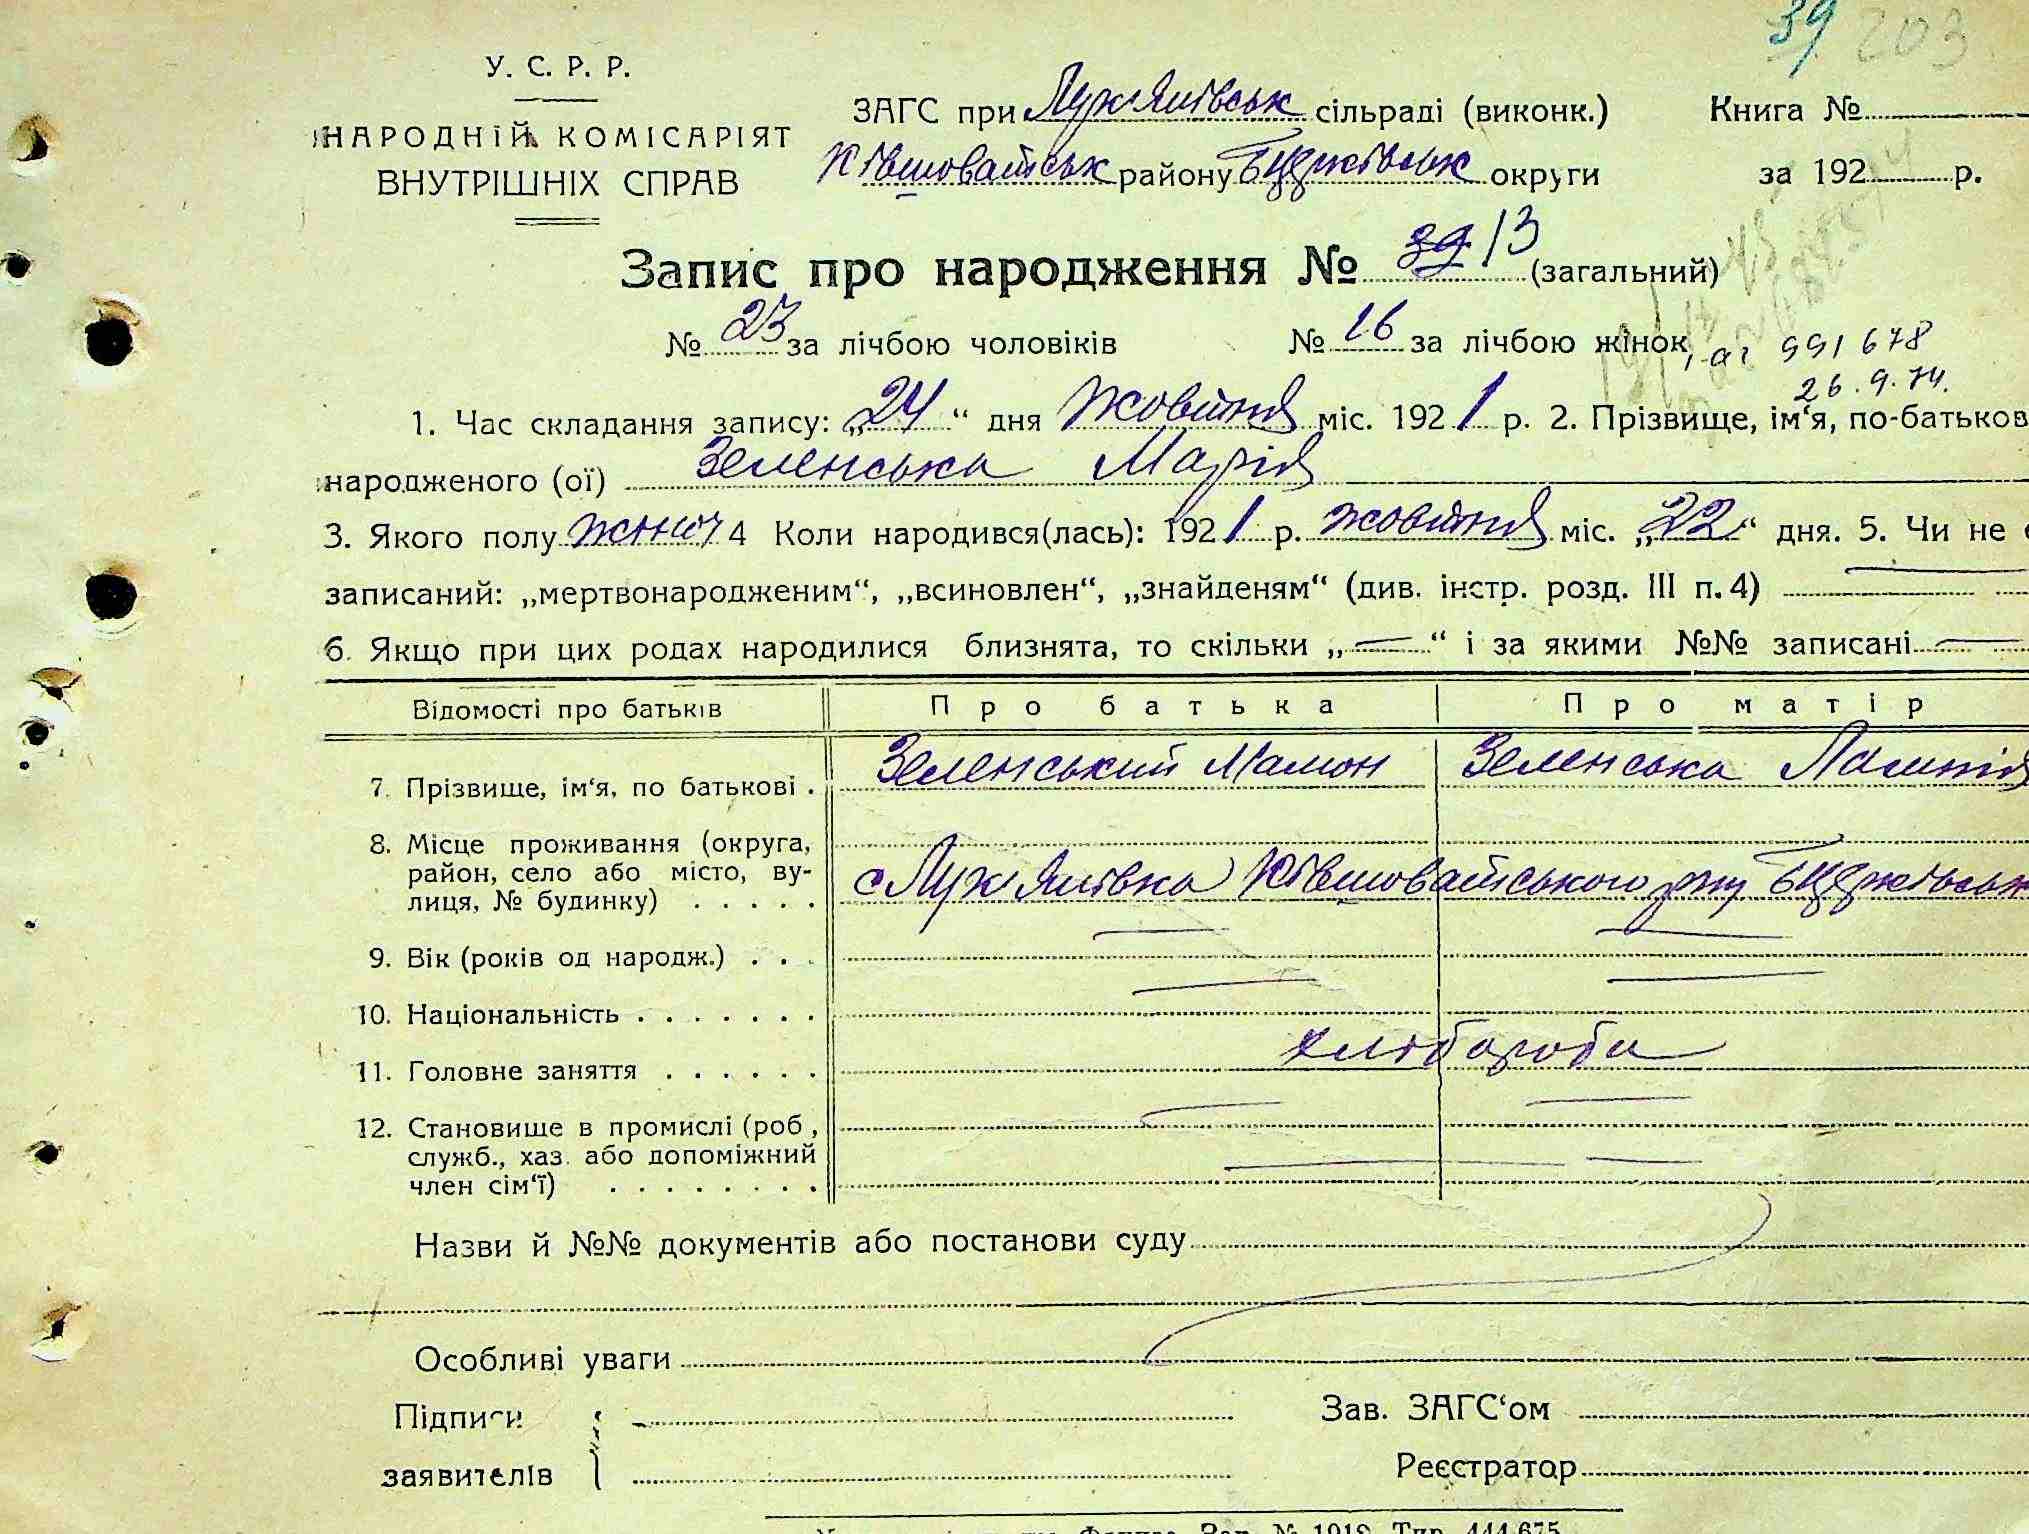 39 203
У. С. Р. Р.
НАРОДНІЙ КОМІСАРІЯТ
ВНУТРІШНІХ СПРАВ
ЗАГС при Лук'янівськ сільраді (виконк.) Книга №
Ківшоватськ району Б/Церківськ округи за 192 р.
Запис про народження № 39 13 (загальний)
№ 23 за лічбою чоловіків № 16 за лічбою жінок
991678
26.9.74.
1. Час складання запису: „24“ дня жовтня міс. 1921 р. 2. Прізвище, ім‘я, по-батькові
народженого (ої) Зеленська Марія
3. Якого полу жіноч 4 Коли народився(лась): 1921 р. жовтня міс. „22“ дня. 5. Чи не
записаний: „мертвонародженим“, „всиновлен“, „знайденям“ (див. інстр. розд. III п. 4)
6. Якщо при цих родах народилися близнята, то скільки „—“ і за якими №№ записані —
Відомості про батьків Про батька Про матір
7. Прізвище, ім‘я, по батькові . Зеленський Мамон Зеленська Лампія
8. Місце проживання (округа,
район, село або місто, ву-
лиця, № будинку) . . . . . с Лук'янівка Ківшоватського р-ну Б/Церківськ
9. Вік (років од народж.) . . .
10. Національність . . . . . . .
11. Головне заняття . . . . . . хлібороби
12. Становище в промислі (роб,
служб., хаз. або допоміжний
член сім‘ї) . . . . . . . .
Назви й №№ документів або постанови суду
Особливі уваги
Підписи Зав. ЗАГС‘ом
заявителів Реєстратор
Зар. № 1918 Тир. 444.675